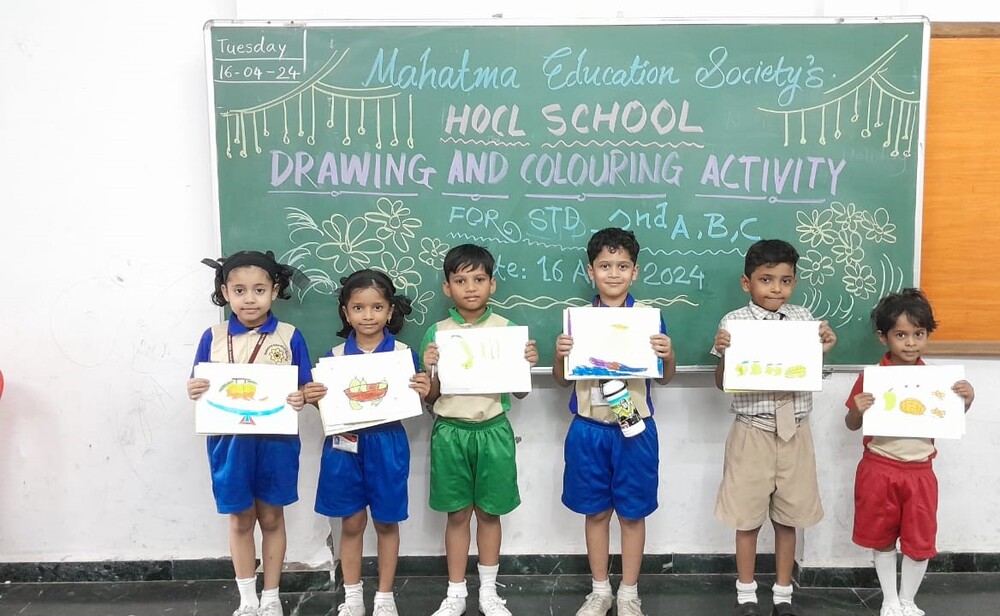 Tuesday
16-04-24
Mahatma Education Society's
HOCL SCHOOL
DRAWING AND COLOURING ACTIVITY
FOR STD 2nd A, B, C
16 2024